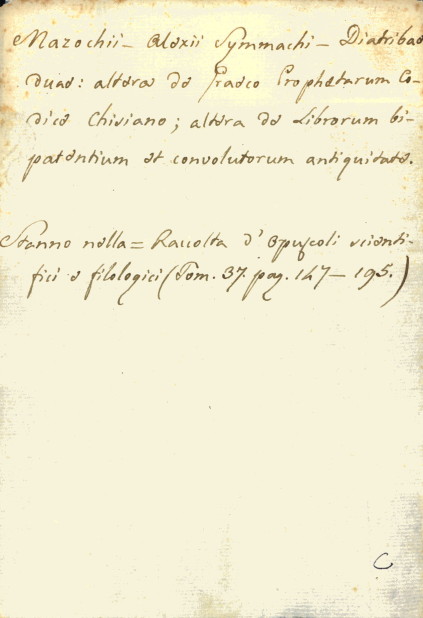 Mazochii - Alexii Symmachi - Diatribae
duae: altera de Graeco Prophetarum Co-
dice Chisiano; altera de Librorum bi-
patentium et convolutorum antiquitate.
Stanno nella = Raccolta d'Opuscoli scienti-
fici e filologici (Tom. 37. pag. 147 - 195.)
C